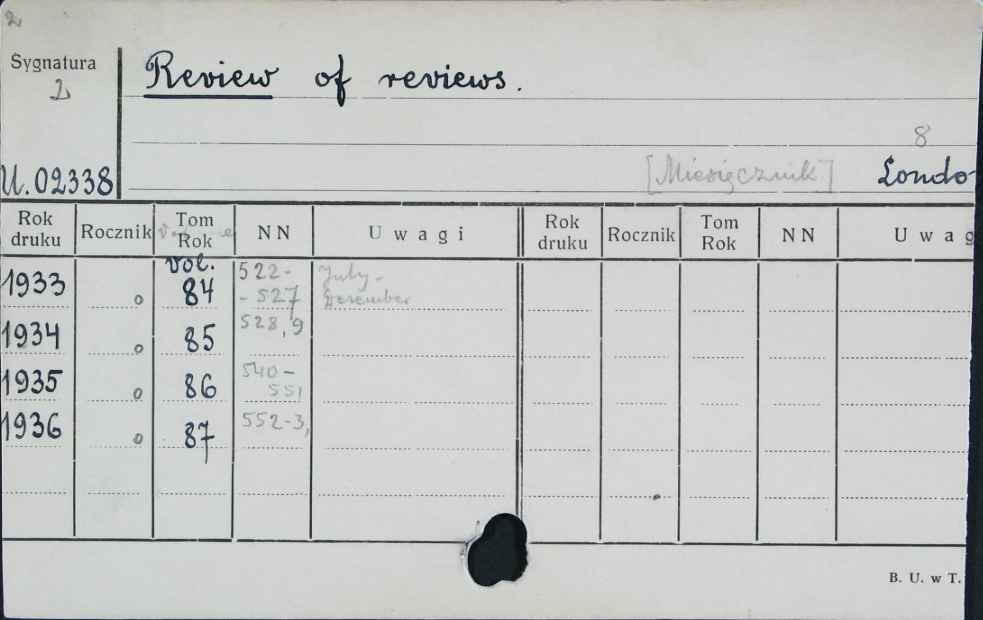 2
Sygnatura
2
Review of reviews.
8
U. 02338
[Miesięcznik] Londo
Rok druku Rocznik Tom Rok NN Uwagi Rok druku Rocznik Tom Rok NN Uwag
vol.
1933 o 84 522- - 527 July - December
1934 o 85 528,9
1935 o 86 540- 551
1936 o 87 552-3,
B. U. w T.